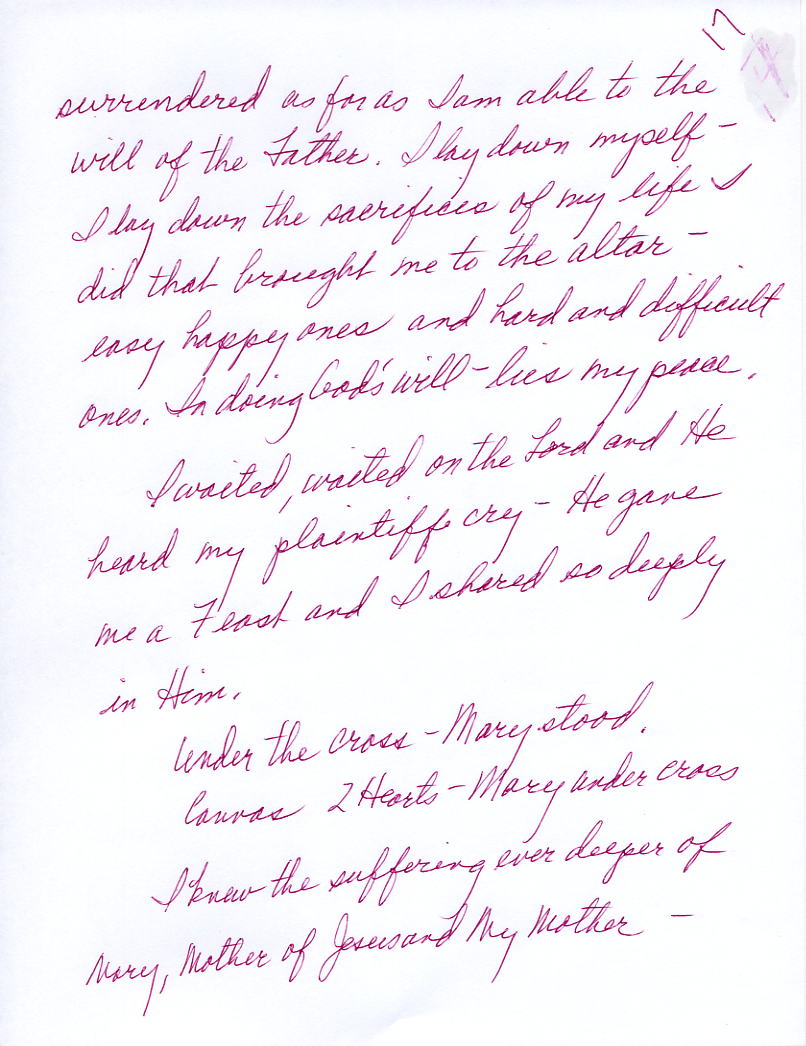 17
surrendered as far as I am able to the
will of the Father. I lay down myself -
I lay down the sacrifices of my life I
did that brought me to the altar -
easy happy ones and hard and difficult
ones. In doing God's will - lies my peace.
I waited, waited on the Lord and He
heard my plaintiffe cry - He gave
me a Feast and I shared so deeply
in Him.
Under the cross - Mary stood.
Canvas 2 Hearts - Mary under cross
I knew the suffering ever deeper of
Mary, Mother of Jesus and My Mother -